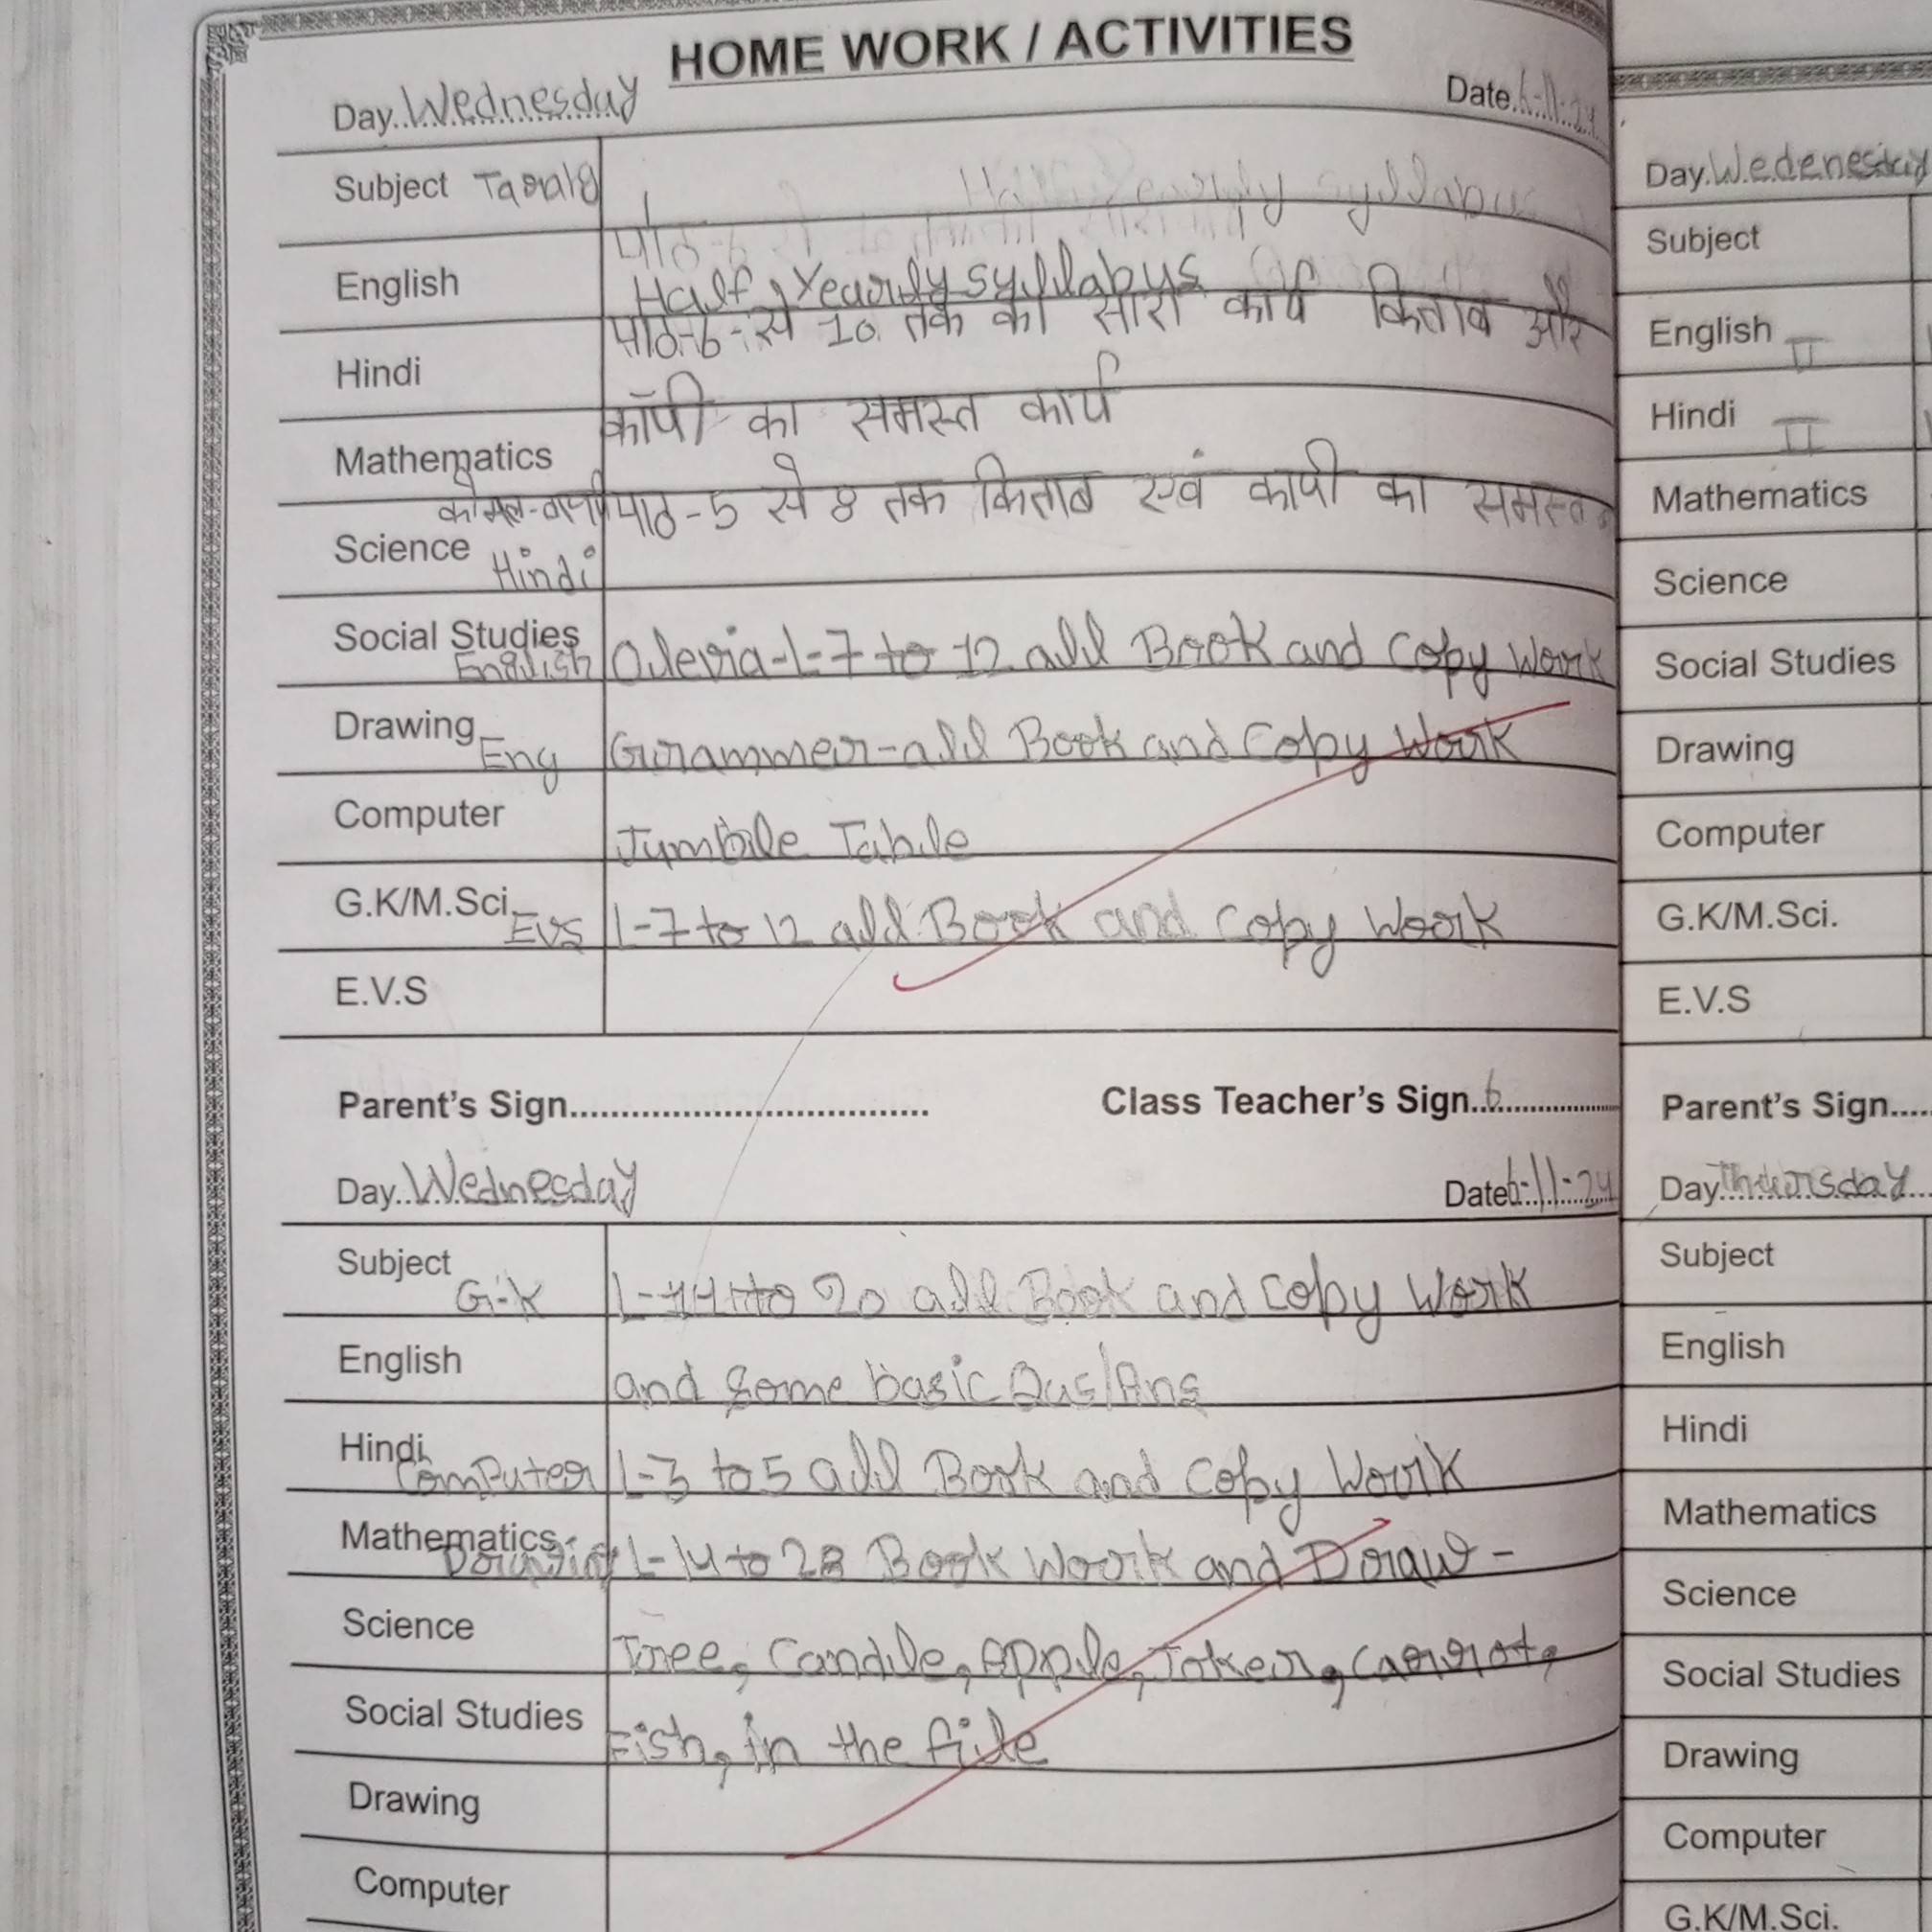 HOME WORK / ACTIVITIES
Day. Wednesday Date. 6-11-24
Subject
English Half Yearly syllabus
पाठ-6-से 10 तक का सारा कार्य किताब और
Hindi
कॉपी का समस्त कार्य
Mathematics
पाठ-5 से 8 तक किताब एवं कापी का समस्त
Science Hindi
Social Studies
English L-7 to 12 all Book and Copy Work
Drawing
Eng Grammer-all Book and Copy Work
Computer
Jumble Table
G.K/M.Sci.
EVS L-7 to 12 all Book and Copy Work
E.V.S
Parent's Sign. Class Teacher's Sign. 6
Day. Wednesday Date 6-11-24
Subject
G.K to 20 all Book and Copy Work
English
and some basic Qus/Ans
Hindi
Computer L-3 to 5 all Book and Copy Work
Mathematics
L-14 to 28 Book Work and Draw-
Science
Tree, Candle, Apple, Joker, Carrot,
Social Studies
Fish, in the file
Drawing
Computer
Day. Wedenesday
Subject
English II
Hindi II
Mathematics
Science
Social Studies
Drawing
Computer
G.K/M.Sci.
E.V.S
Parent's Sign.
Day. Thursday
Subject
English
Hindi
Mathematics
Science
Social Studies
Drawing
Computer
G.K/M.Sci.